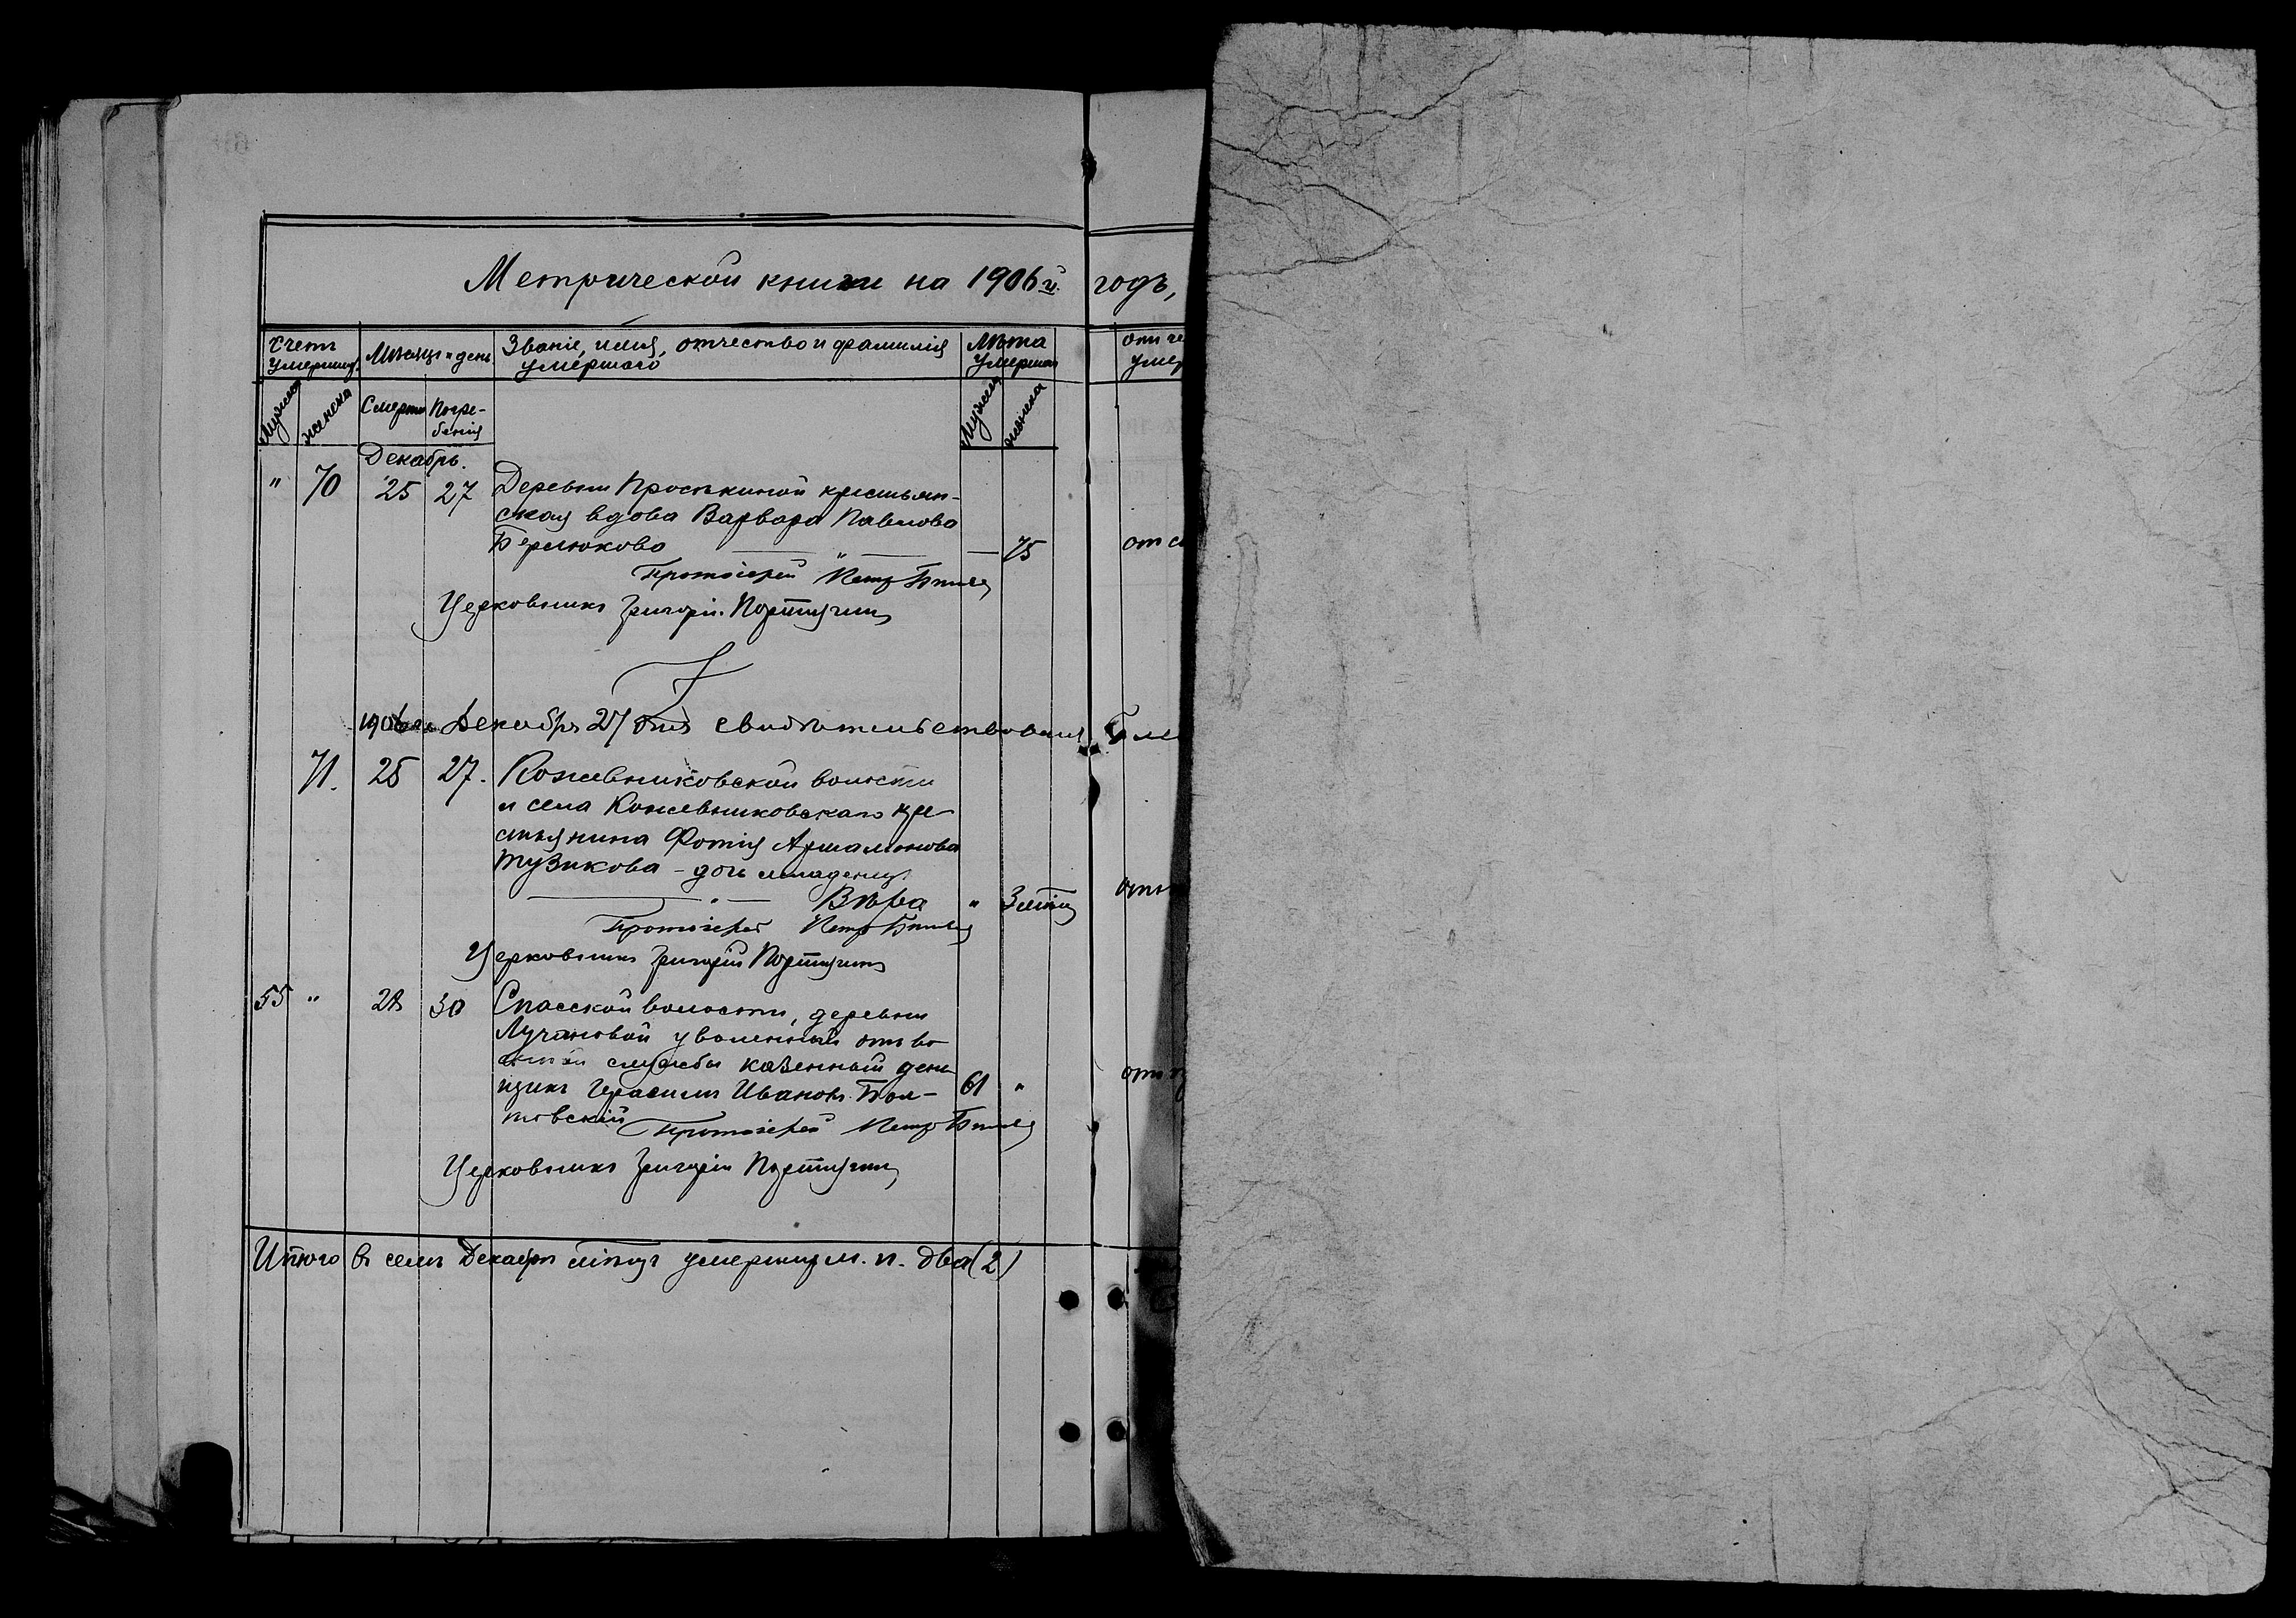 Метрической книги на 1906й. годъ,
Счетъ умершихъ. Мѣсяцъ и день Званіе, имя, отчество и фамилія умершаго Лѣта умершаго
Мужска женска Смерти Погребенія Мужска женска
Декабрь.
" 70 25 27 Деревни Проскиной крестьян-
ская вдова Варвара Павлова
Берлюкова — " — — 75
Протоіерей Петр
Церковникъ Григорій
Декабря 27 дня свидѣтельствовалъ
71. 25 27. Кожевниковской волости
и села Кожевниковскаго кре
стьянина Фотія Артамонова
Тузикова - дочь младенецъ
— " — Вѣра "
Протоіерей Петр
Церковникъ Григорій
55 " 28 30 Спасской волости, деревни
Лучановой уволенный отъ во
службы казенный ден
щикъ Герасимъ Ивановъ Пол- 61 "
товскій Протоіерей Петр
Церковникъ Григорій
Итого въ семъ Декабрѣ умершихъ м. п. два (2)